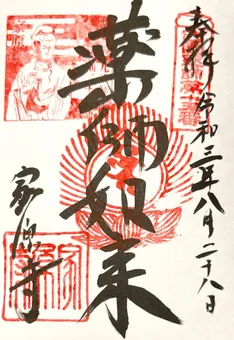 奉拝 令和三年八月二十八日
薬師如来
家原寺